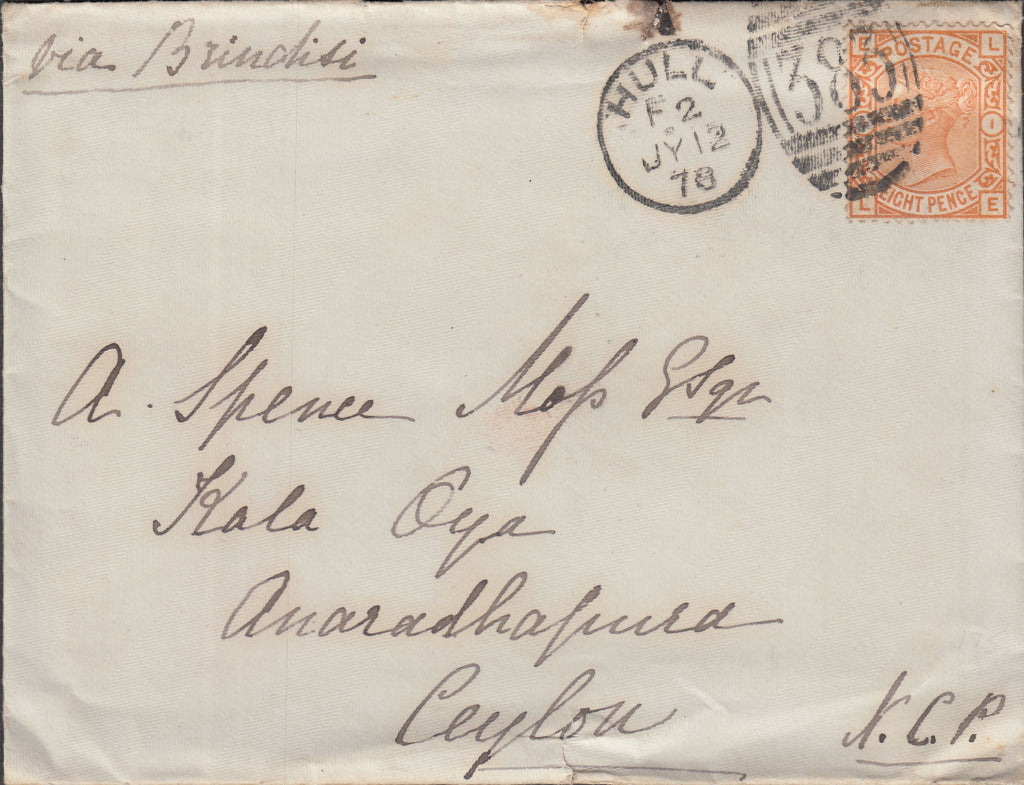 via Brindisi
HULL
F 2
JY 12
78
383
E L
POSTAGE
1
EIGHT PENCE
L E
A. Spence Moſs Esqr
Kala Oya
Anaradhapura
Ceylon
N.C.P.